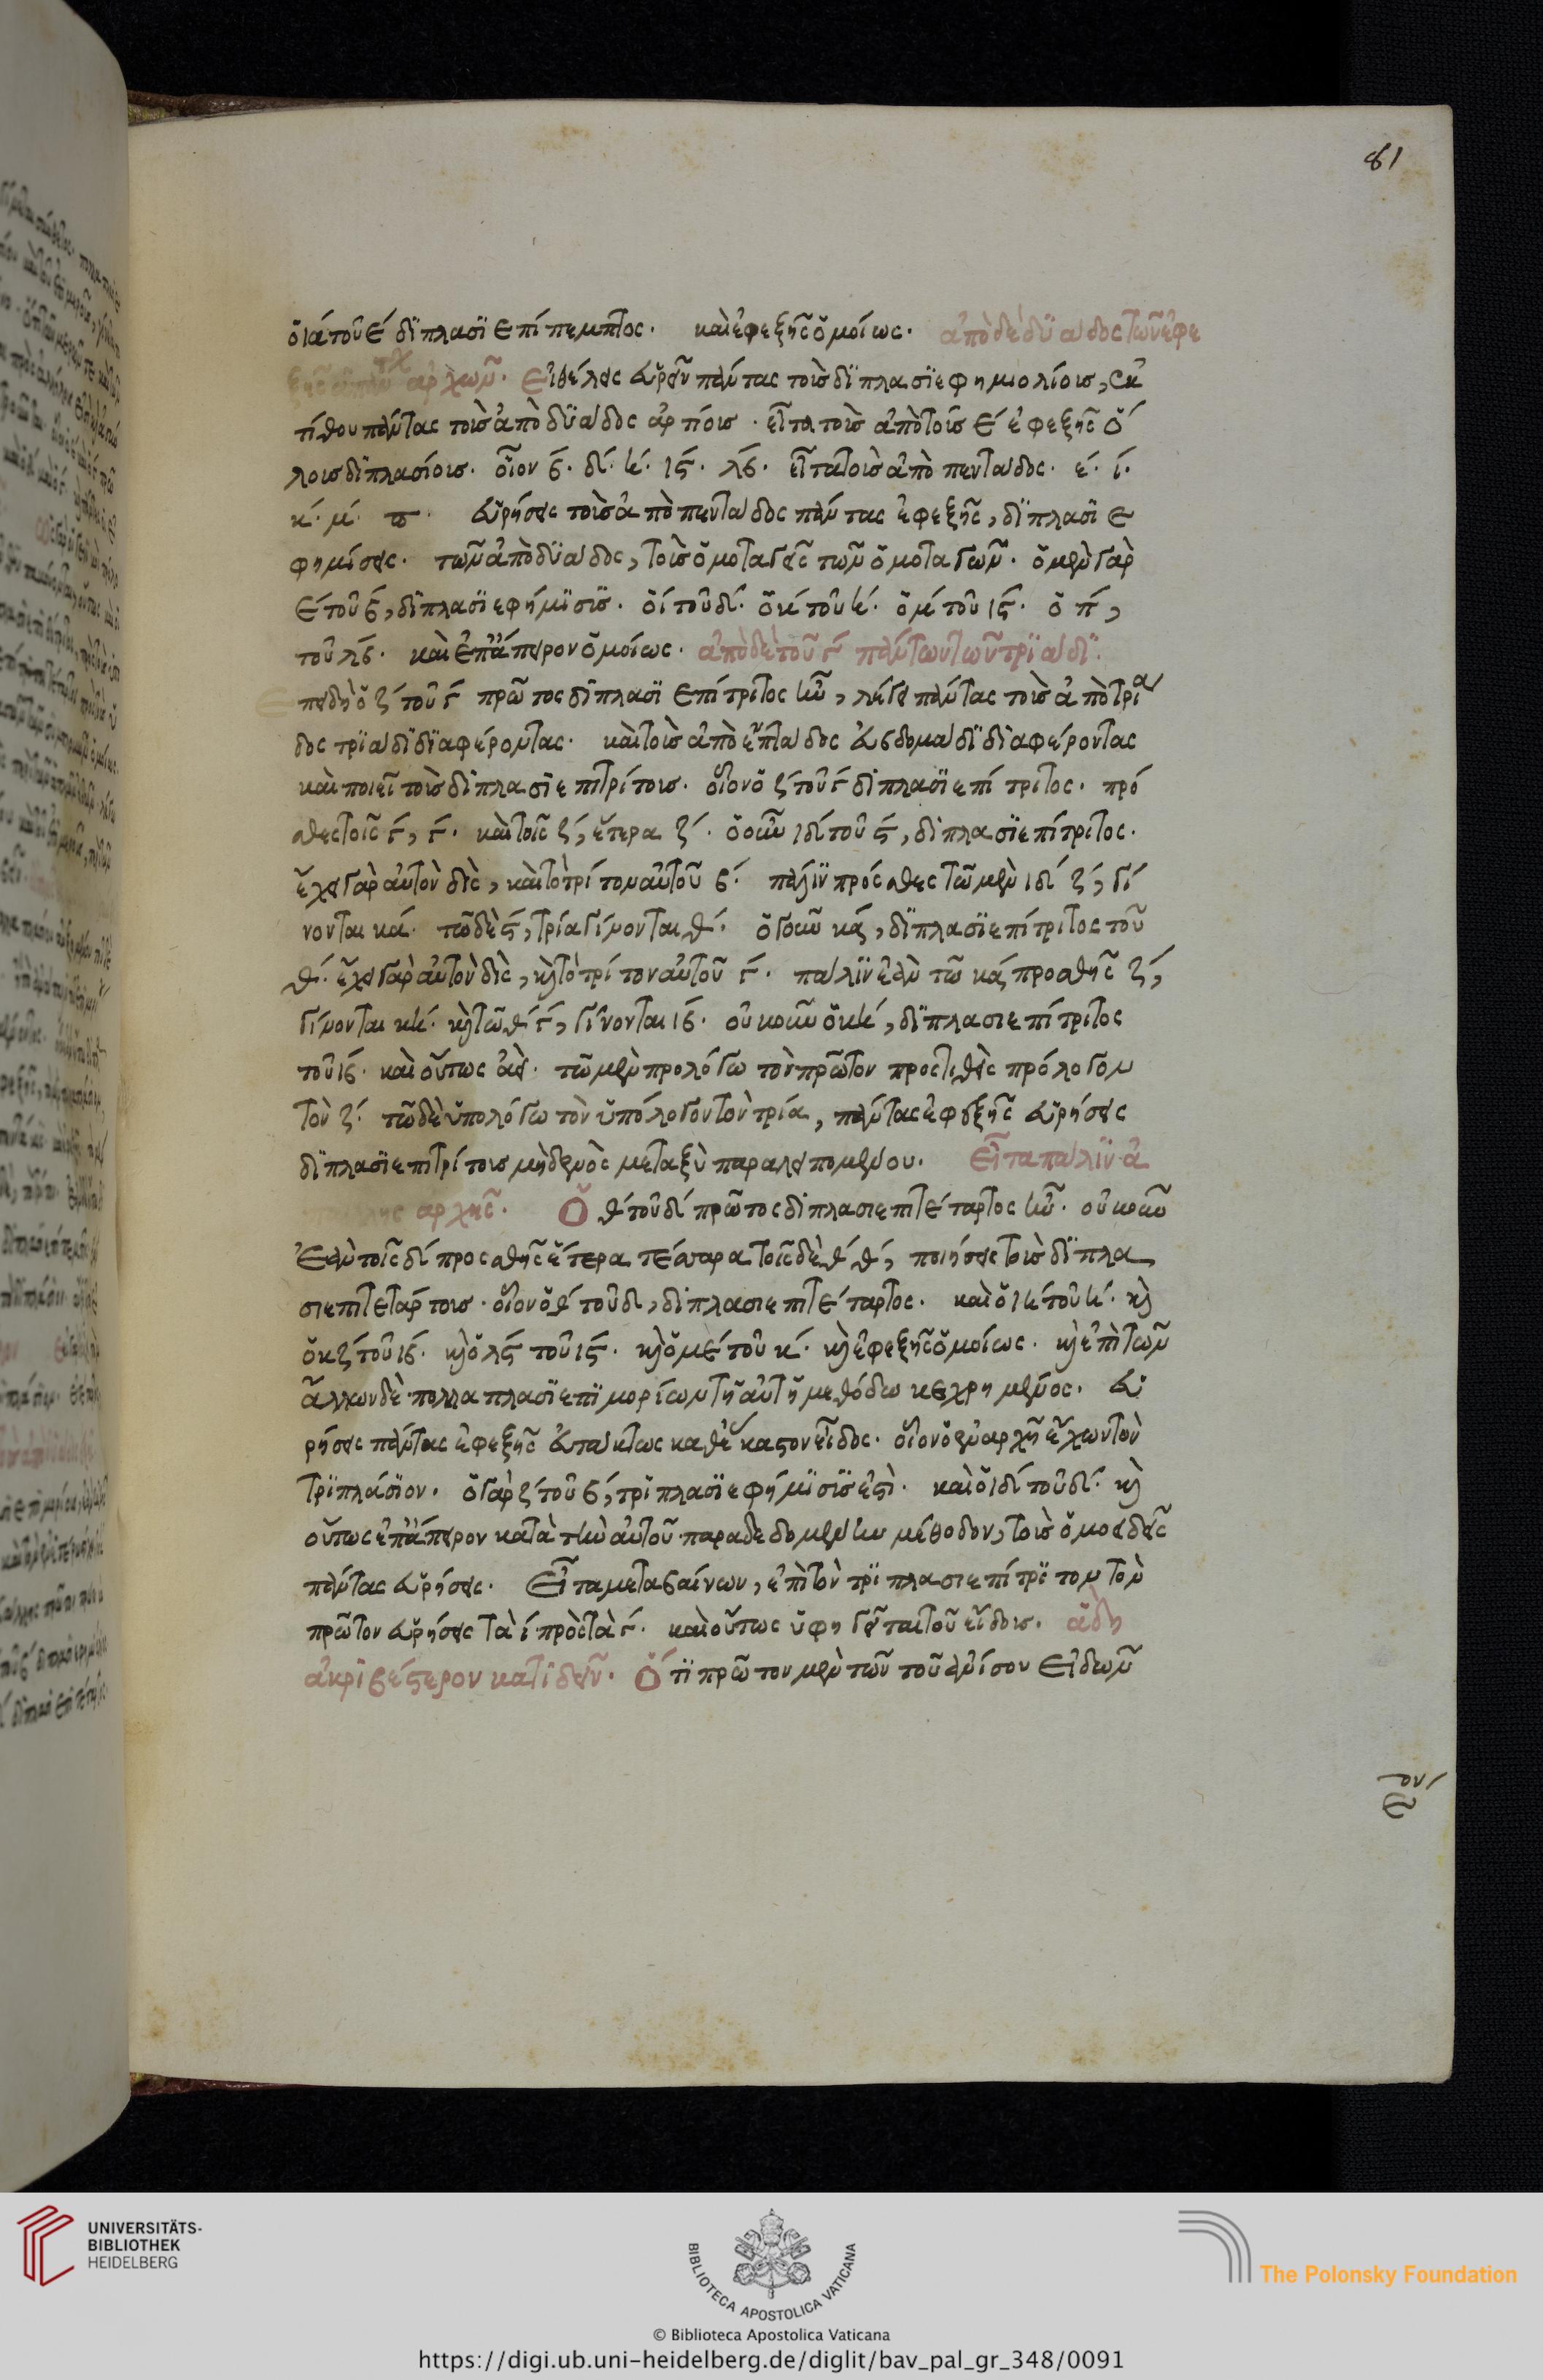 81
ὁ ιά τοῦ έ διπλασιεπίπεμπτος. καὶ ἐφεξῆς ὁμοίως. ἀπὸ δὲ δυάδος τῶν ἐφε
ἀρχων. εἰ θέλεις εὑρεῖν πάντας τοὺς διπλασιεφημιολίους, ἐκ
τίθου πάντας τοὺς ἀπὸ δυάδος ἀρτίους. εἶτα τοὺς ἀπὸ τοῦ έ ἐφεξῆς ὅ
λους διπλασίους. οἷον β. δ. η. ις. λβ. εἶτα τοὺς ἀπὸ πεντάδος. ε. ι.
κ. μ. π. εὑρήσεις τοὺς ἀπὸ πεντάδος πάντας ἐφεξῆς, διπλασιε
φημίσεις. τῶν ἀπὸ δυάδος, τοὺς ὁμοταγεῖς τῶν ὁμοταγῶν. ὁ μὲν γὰρ
έ τοῦ β, διπλασιεφήμισυς. ὁ ί τοῦ δ. ὁ κ τοῦ η. ὁ μ τοῦ ις. ὁ π,
τοῦ λβ. καὶ ἐπ' ἄπειρον ὁμοίως. ἀπὸ δὲ τοῦ γ πάντων τῶν τριάδι.
Επειδὴ ὁ ζ τοῦ γ πρῶτος διπλασιεπίτριτος ἦν, λέγε πάντας τοὺς ἀπὸ τριά
δος τριάδι διαφέροντας. καὶ τοὺς ἀπὸ ἑπτάδος ἑβδομάδι διαφέροντας
καὶ ποιεῖ τοὺς διπλασιεπιτρίτους. οἷον ὁ ζ τοῦ γ διπλασιεπίτριτος. πρό
σθες τοῖς γ, γ. καὶ τοῖς ζ, ἕτερα ζ. ὁ οὖν ιδ τοῦ ς, διπλασιεπίτριτος.
ἔχει γὰρ αὐτὸν δὶς, καὶ τὸ τρίτον αὐτοῦ β. πάλιν πρόσθες τῷ μὲν ιδ ζ, γί
νονται κα. τῷ δὲ ς, τρία γίνονται θ. ὁ γοῦν κα, διπλασιεπίτριτος τοῦ
θ. ἔχει γὰρ αὐτὸν δὶς, καὶ τὸ τρίτον αὐτοῦ γ. πάλιν ἐὰν τῷ κα προσθῇς ζ,
γίνονται κη. καὶ τῷ θ γ, γίνονται ιβ. οὐκοῦν ὁ κη, διπλασιεπίτριτος
τοῦ ιβ. καὶ οὕτως ἀεὶ. τῷ μὲν προλόγῳ τὸν πρῶτον προστιθεὶς πρόλογον
τὸν ζ. τῷ δὲ ὑπολόγῳ τὸν ὑπόλογον τὸν τρία, πάντας ἐφεξῆς εὑρήσεις
διπλασιεπιτρίτους μηδενὸς μεταξὺ παραλειπομένου. Εἶτα πάλιν ἀ
ἀρχῆς. Ὁ θ τοῦ δ πρῶτος διπλασιεπιτέταρτος ἦν. οὐκοῦν
ἐὰν τοῖς δ προσθῇς ἕτερα τέσσαρα τοῖς δὲ θ θ, ποιήσεις τοὺς διπλα
σιεπιτετάρτους. οἷον ὁ θ τοῦ δ, διπλασιεπιτέταρτος. καὶ ὁ ιη τοῦ η. καὶ
ὁ κζ τοῦ ιβ. καὶ ὁ λς τοῦ ις. καὶ ὁ με τοῦ κ. καὶ ἐφεξῆς ὁμοίως. καὶ ἐπὶ τῶν
ἄλλων δὲ πολλαπλασιεπιμορίων τῇ αὐτῇ μεθόδῳ κεχρημένος. εὑ
ρήσεις πάντας ἐφεξῆς εὐτάκτως καθ' ἕκαστον εἶδος. οἷον ὁ ἐν ἀρχῇ ἔχων τὸν
τριπλάσιον. ὁ γὰρ ζ τοῦ β, τριπλασιεφήμισύς ἐστι. καὶ ὁ ιδ τοῦ δ. καὶ
οὕτως ἐπ' ἄπειρον κατὰ τὴν αὐτοῦ παραδεδομένην μέθοδον, τοὺς ὁμοειδεῖς
πάντας εὑρήσεις. Εἶτα μεταβαίνων, ἐπὶ τὸν τριπλασιεπίτριτον τὸν
πρῶτον εὑρήσεις τὰ ι πρὸς τὰ γ. καὶ οὕτως ὑφηγεῖται τοῦ εἴδους. ἄδη
ἀκριβέστερον κατιδεῖν. Ὅτι πρῶτον μὲν τῶν τοῦ ἀνίσου εἰδῶν
UNIVERSITÄTS-
BIBLIOTHEK
HEIDELBERG
BIBLIOTECA APOSTOLICA VATICANA
The Polonsky Foundation
© Biblioteca Apostolica Vaticana
https://digi.ub.uni-heidelberg.de/diglit/bav_pal_gr_348/0091